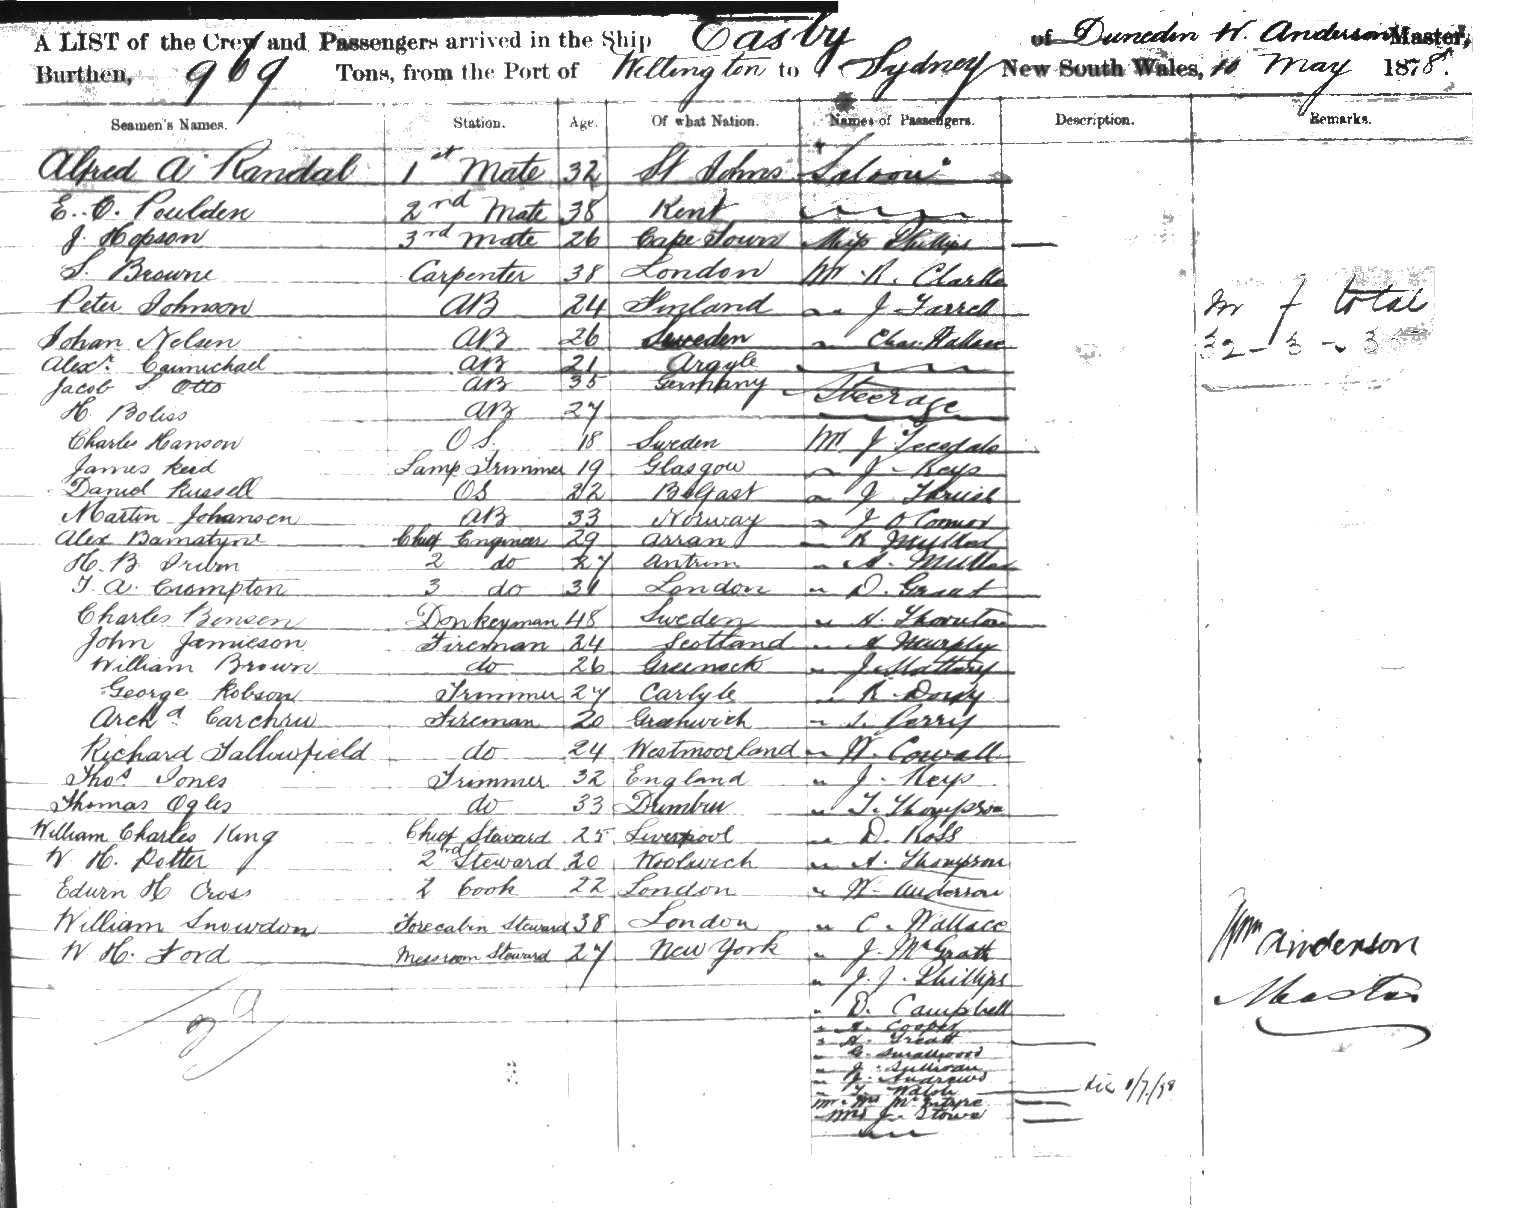 A LIST of the Crew and Passengers arrived in the Ship Easby of Dunedin W. Anderson Master,
Burthen, 969 Tons, from the Port of Wellington to Sydney New South Wales, 10 May 1878.
Seamen's Names. Station. Age. Of what Nation. Names of Passengers. Description. Remarks.
Alfred A Randal 1st Mate 32 St Johns Saloon
E. O. Poulden 2nd Mate 38 Kent
J. Hopson 3rd Mate 26 Cape Town Miss Phillips
S. Browne Carpenter 38 London Mr R. Clarke
Peter Johnson AB 24 Finland " J Farrell m f total
Johan Nelsen AB 26 Sweden " Chas. Wallace 32 - 3 - 35
Alexr. Carmichael AB 21 Argyle
Jacob S Otto AB 35 Germany Steerage
H. Boliss AB 27
Charles Hanson OS. 18 Sweden Mr J Teesdale
James Reid Lamp Trimmer 19 Glasgow " J. Keys
Daniel Russell OS 22 Belfast " J
Martin Johansen AB 33 Norway " J O Connor
Alex Bamatyne Chief Engineer 29 Arran " R
H. B. 2 do 27 Antrim " A. Mullan
T. A. Crompton 3 do 31 London " D. Grant
Charles Bensen Donkeyman 48 Sweden " A. Thornton
John Jamieson Fireman 24 Scotland " Murphy
William Brown do 26 Greenock " J.
George Robson Trimmer 27 Carlyle " R.
Archd Fireman 20 Greenwich " Perry
Richard Fallowfield do 24 Westmoorland " W. Cowall
Thos Jones Trimmer 32 England " J. Keys
Thomas Ogles do 33 " T. Thompson
William Charles King Chief Steward 25 Liverpool " D. Ross
W H. Potter 2nd Steward 20 Woolwich " A. Thompson
Edwin H Cross 2 Cook 22 London " W. Anderson
William Snowdon Forecabin Steward 38 London " C. Wallace
W H. Ford Messroom Steward 27 New York " J. McGrath
Wm Anderson
" J. J. Phillips
Master
" D. Campbell
" A. Cooper
" A.
" G. Smallwood
" J. Sullivan
" Andrews
" T. Walsh
Mr. Mrs McIntyre
Mrs J. Stowe